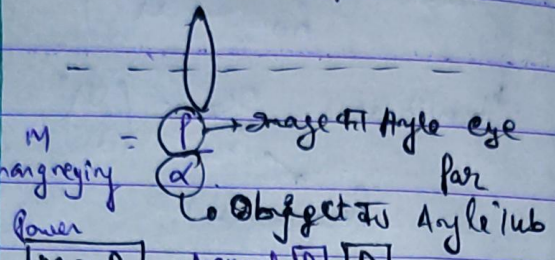 M = β → Image का Angle eye
mangneying α par
Power ↳ Object का Angle sub